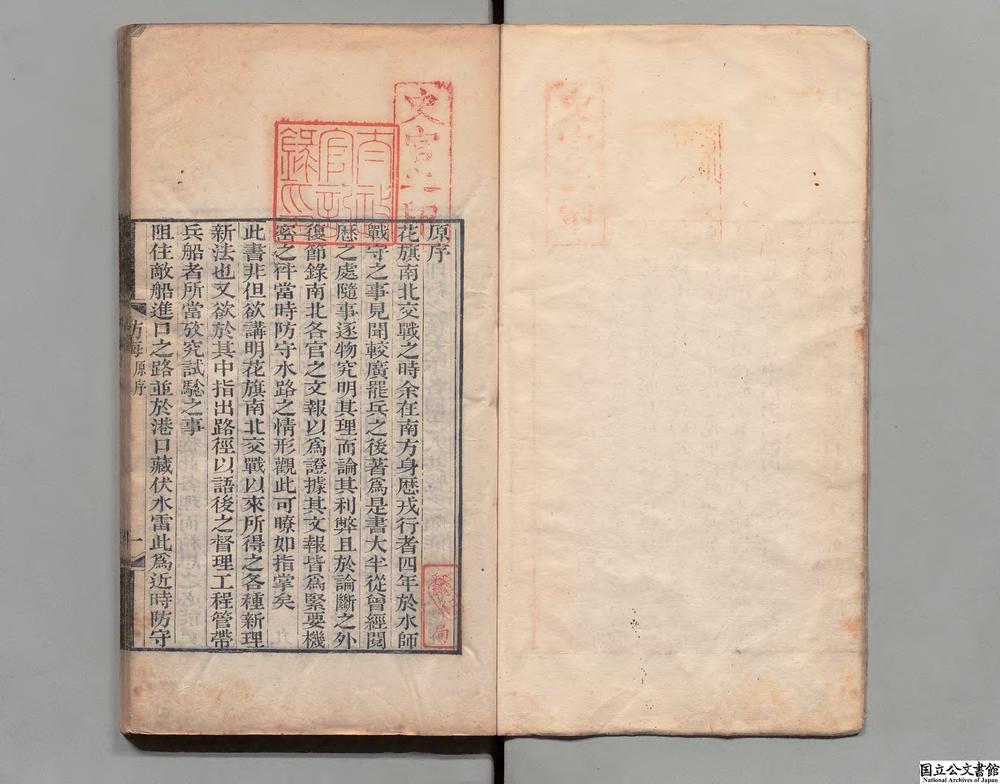 原序
花旗南北交戰之時余在南方身歴戎行者四年於水師
戰守之事見聞較廣罷兵之後著爲是書大半從曾經閱
歴之處隨事逐物究明其理而論其利弊且於論斷之外
復節錄南北各官之文報以爲證據其文報皆爲緊要機
密之件當時防守水路之情形觀此可瞭如指掌矣
此書非但欲講明花旗南北交戰以來所得之各種新理
新法也又欲於其中指出路徑以語後之督理工程管帶
兵船者所當攷究試驗之事
阻住敵船進口之路並於港口藏伏水雷此爲近時防守
防海原序
一
史官之印
太政官記錄印
國立公文書館
National Archives of Japan